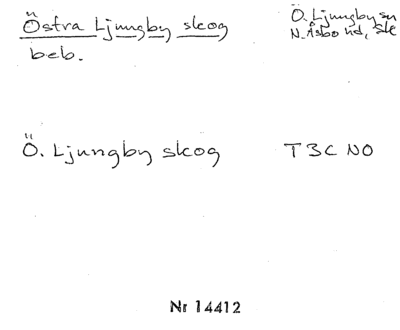 Östra Ljungby skog
beb.
Ö. Ljungby sn
N. Åsbo hd, Sk
Ö. Ljungby skog
T3C NO
Nr 14412